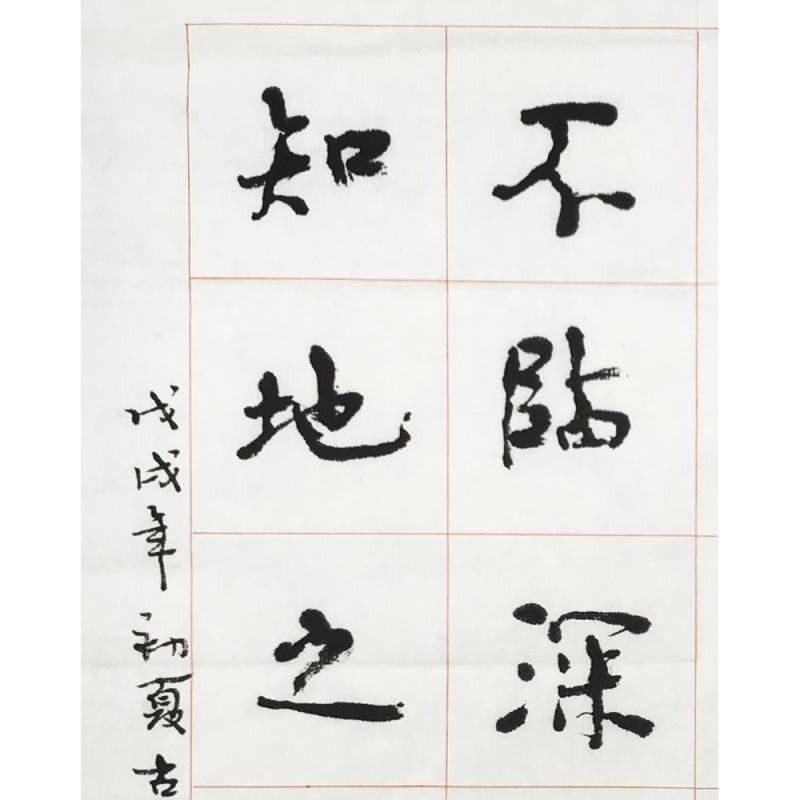 不临深
知地之
戊戌年初夏古